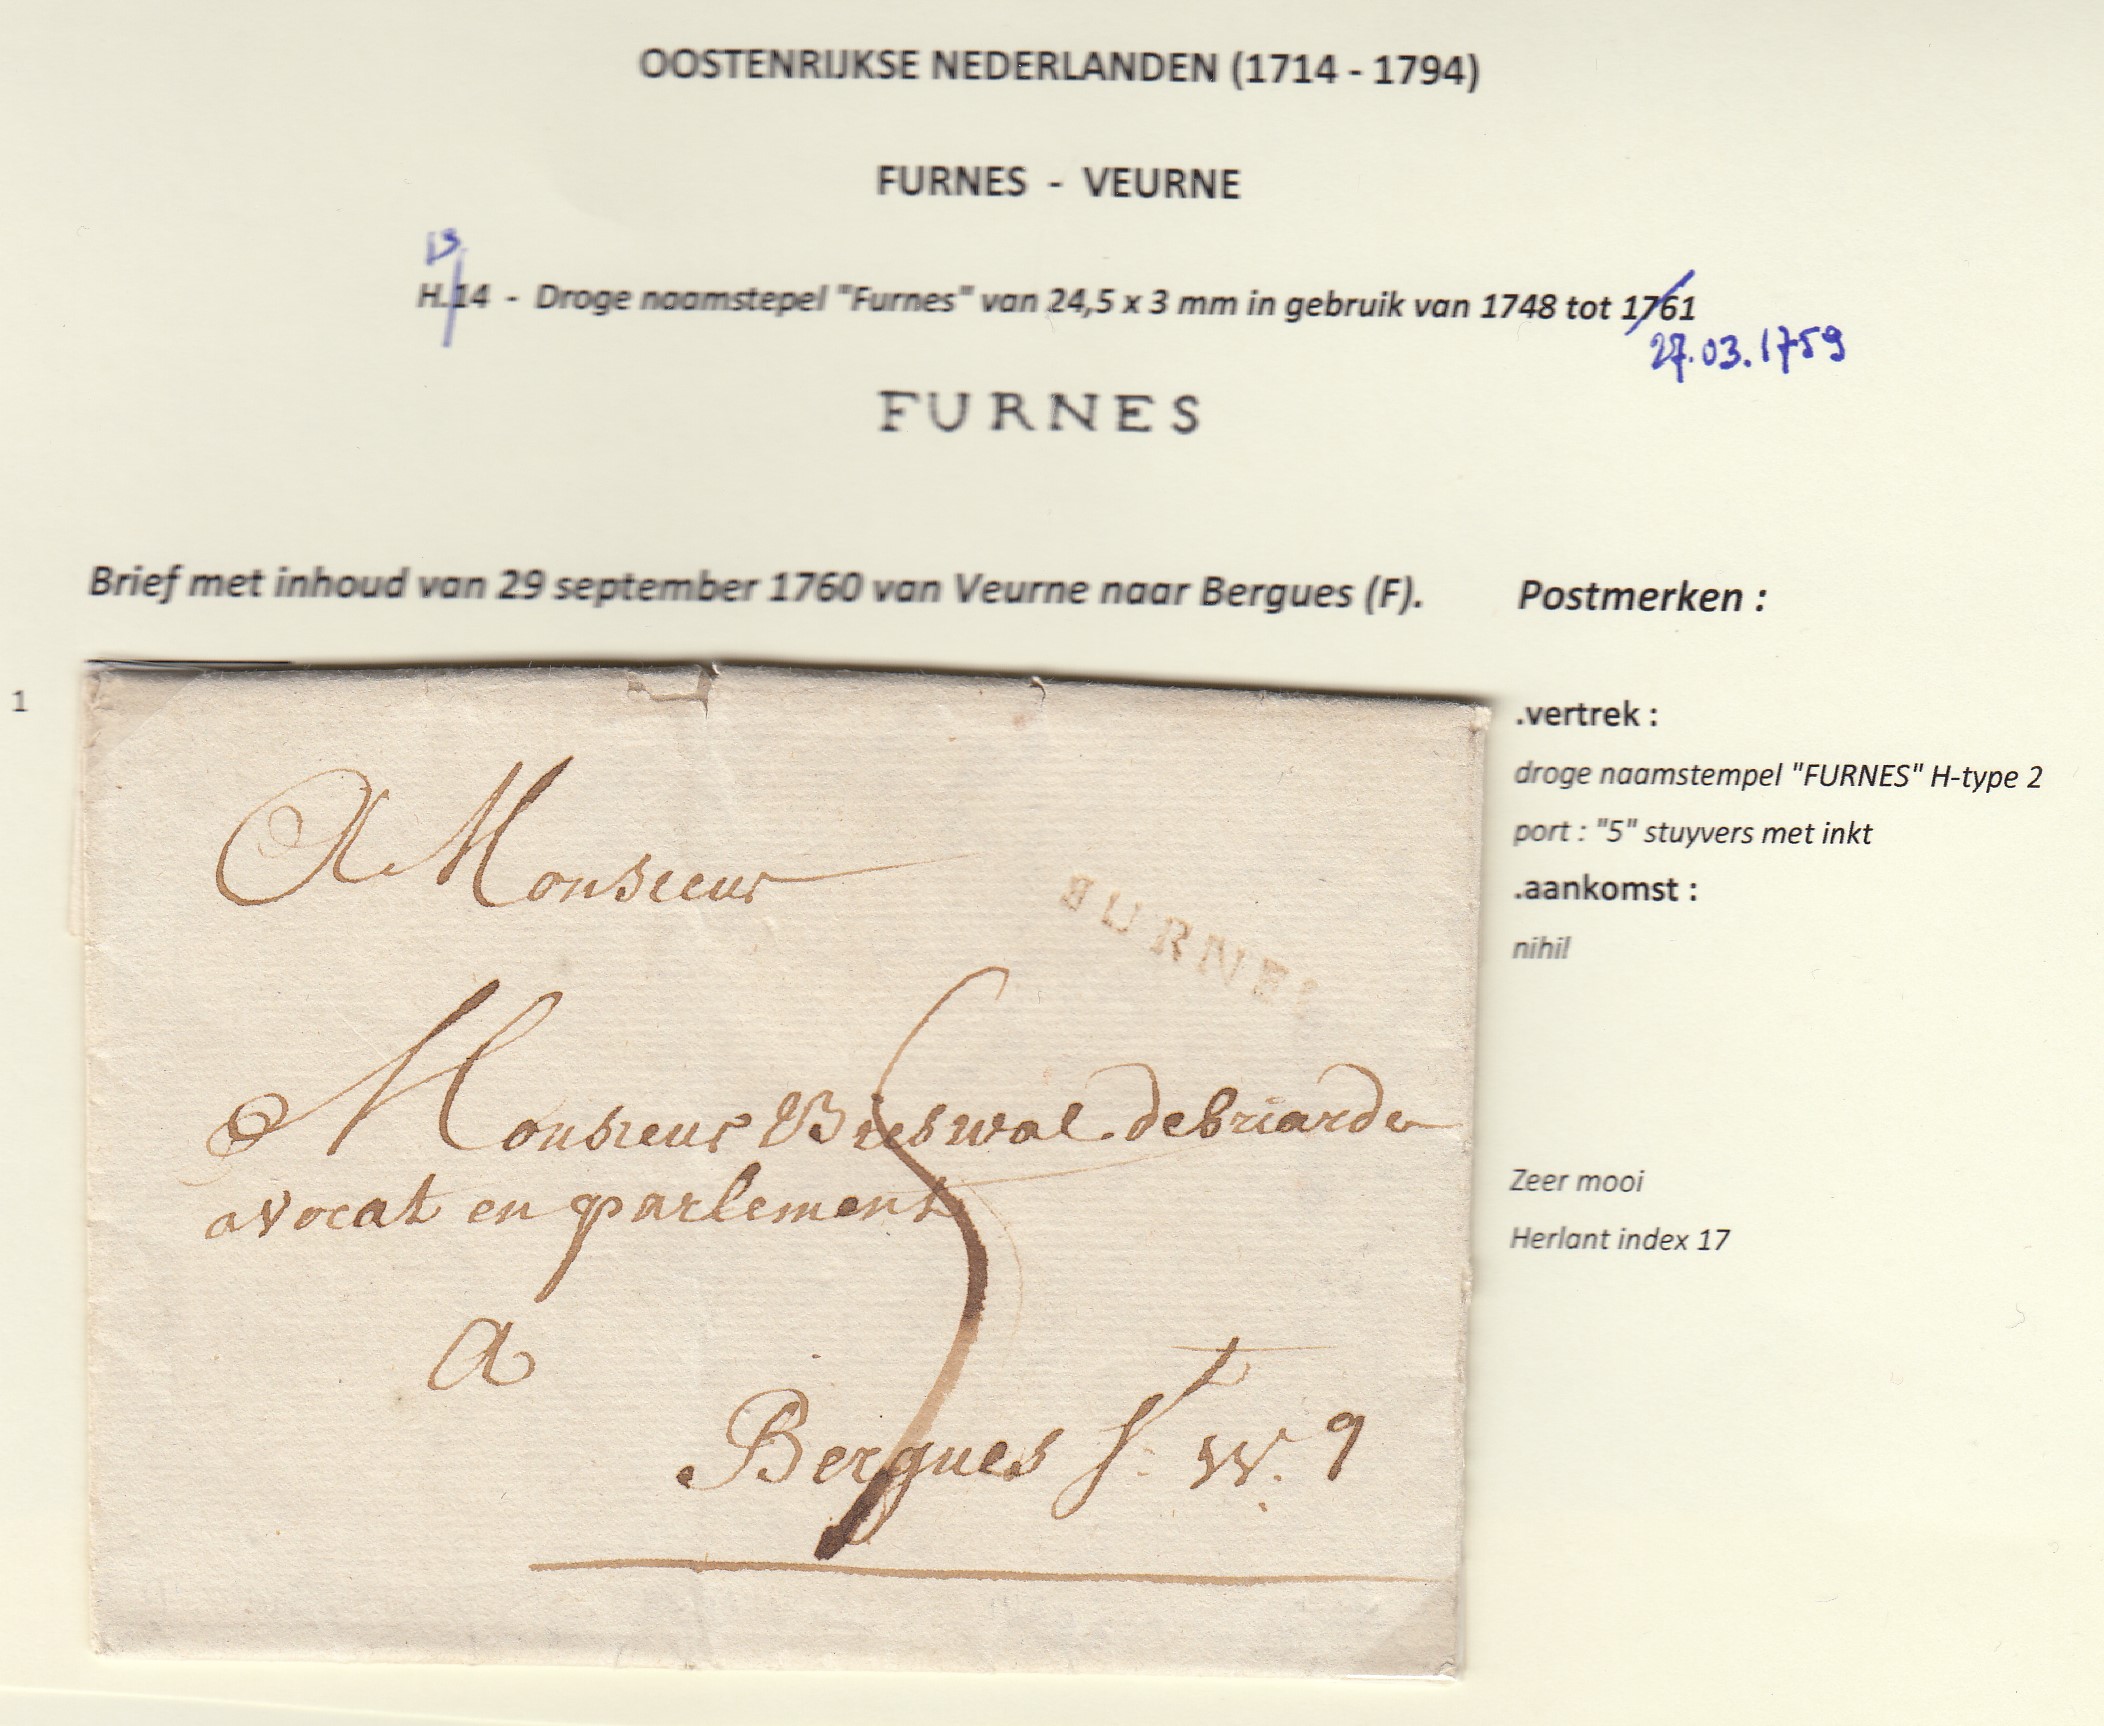 OOSTENRIJKSE NEDERLANDEN (1714 - 1794)
FURNES - VEURNE
13
H.14 - Droge naamstepel "Furnes" van 24,5 x 3 mm in gebruik van 1748 tot 1761
27.03.1759
FURNES
Brief met inhoud van 29 september 1760 van Veurne naar Bergues (F).
Postmerken :
1
.vertrek :
droge naamstempel "FURNES" H-type 2
port : "5" stuyvers met inkt
.aankomst :
nihil
Zeer mooi
Herlant index 17
A Monsieur
FURNES
Monsieur Bieswal debriarde
avocat en parlement
5
A
Bergues St. W. 9